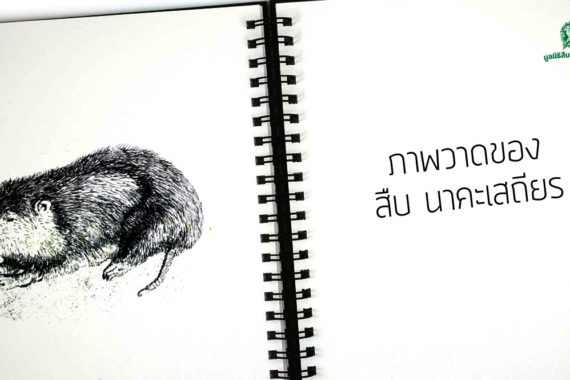 มูลนิธิสืบ
ภาพวาดของ
สืบ นาคะเสถียร